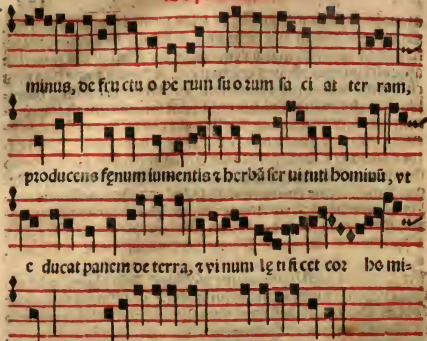 minus, de fructu o pe rum su o rum sa ci at ter ram,
producens fęnum iumentis ⁊ herbā ser ui tuti hominū, vt
e ducat panem de terra, ⁊ vi num lę ti fi cet cor ho mi-